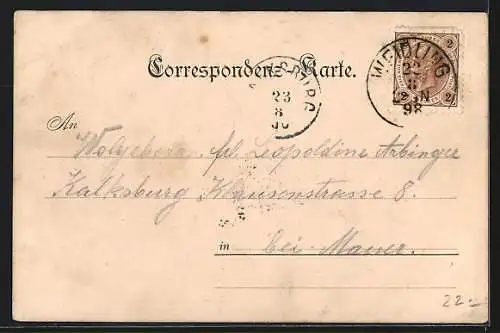 Correspondenz-Karte.
WEIDLING
23
8
98
2 2
2 N
KSBURG
23
8
An
Wolgeboren frl. Leopoldine Arbinger
Kalksburg Klausenstrasse 8.
in bei Mauer.
22.-